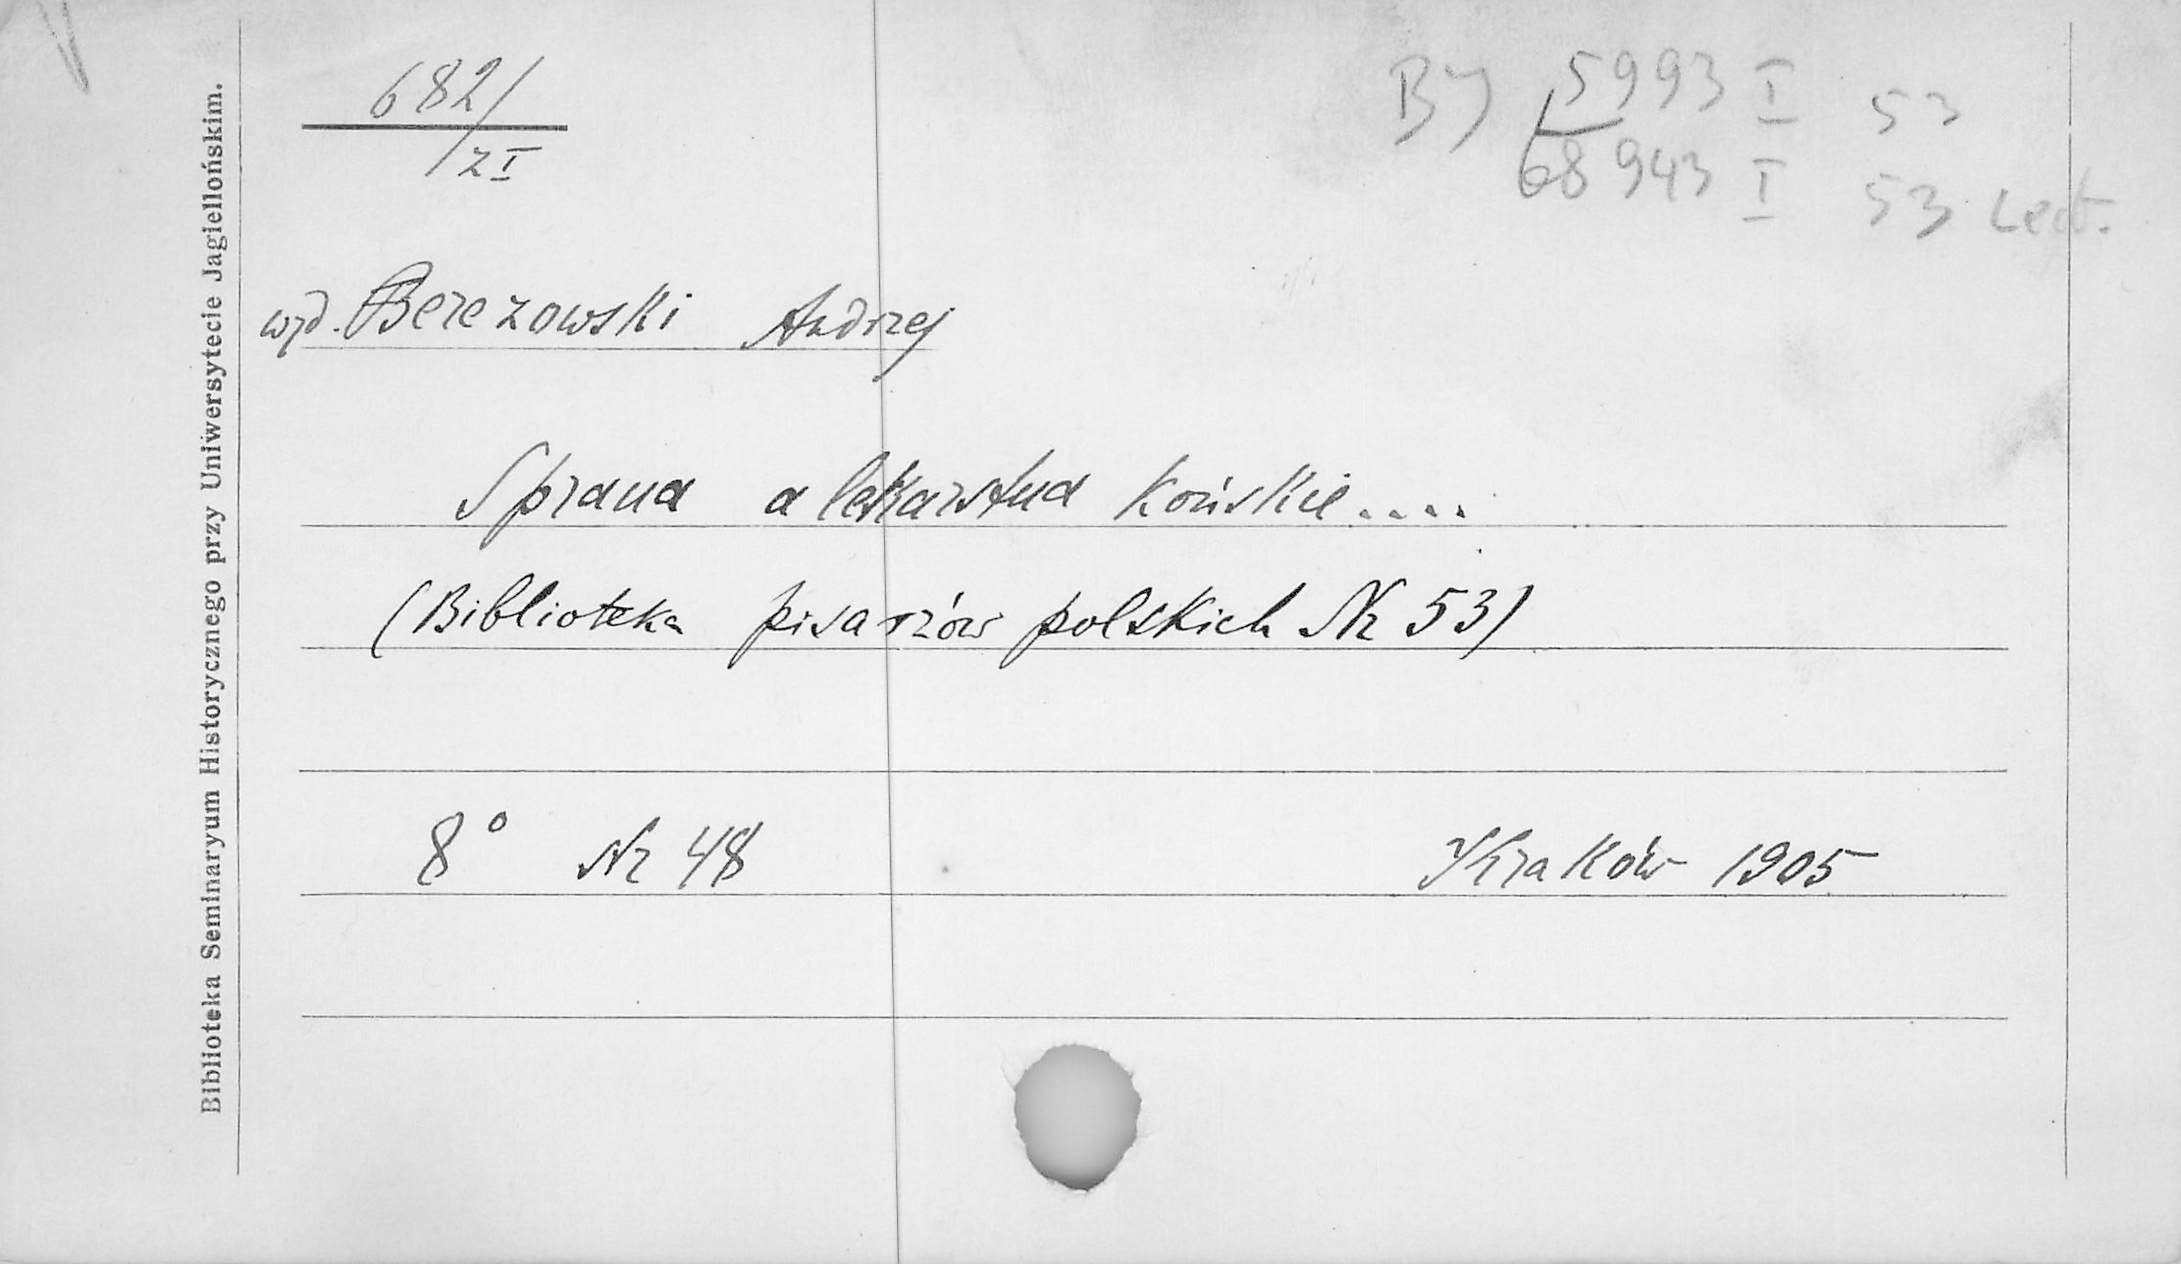 682/
z I
BJ 5993 I 53
68943 I 53 Lect.
wyd. Berezowski Andrzej
Sprawa a lekarstwa końskie....
(Biblioteka pisarzów polskich Nr 53)
8° Nr 48 Kraków 1905
Biblioteka Seminaryum Historycznego przy Uniwersytecie Jagiellońskim.